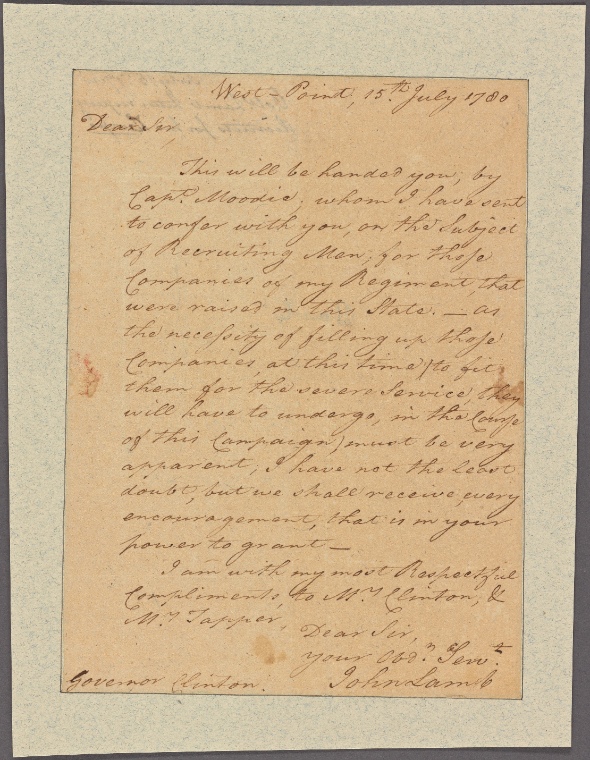 West-Point, 15.th July 1780
Dear Sir,
This will be handed you, by
Capt. Moodie, whom I have sent
to confer with you, on the Subject
of Recruiting Men, for those
Companies of my Regiment, that
were raised in this State. — as
the necessity of filling up those
Companies, at this time (to fit
them for the severe Service, they
will have to undergo, in the Course
of this Campaign) must be very
apparent, I have not the least
doubt, but we shall receive, every
encouragement, that is in your
power to grant —
I am with my most Respectful
Compliments, to Mrs. Clinton, &
Mrs. Tapper,
Dear Sir,
your Obd. Servt.
John Lamb
Governor Clinton.